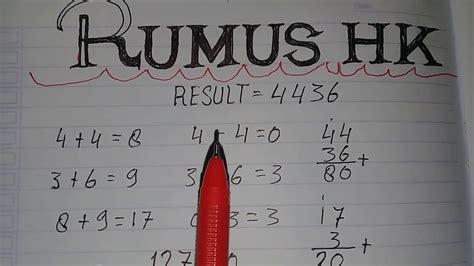 RUMUS HK
RESULT = 4436
4 + 4 = 8 4 - 4 = 0 44
36 +
3 + 6 = 9 3 6 = 3 80
8 + 9 = 17 3 = 3 17
3 +
127 20